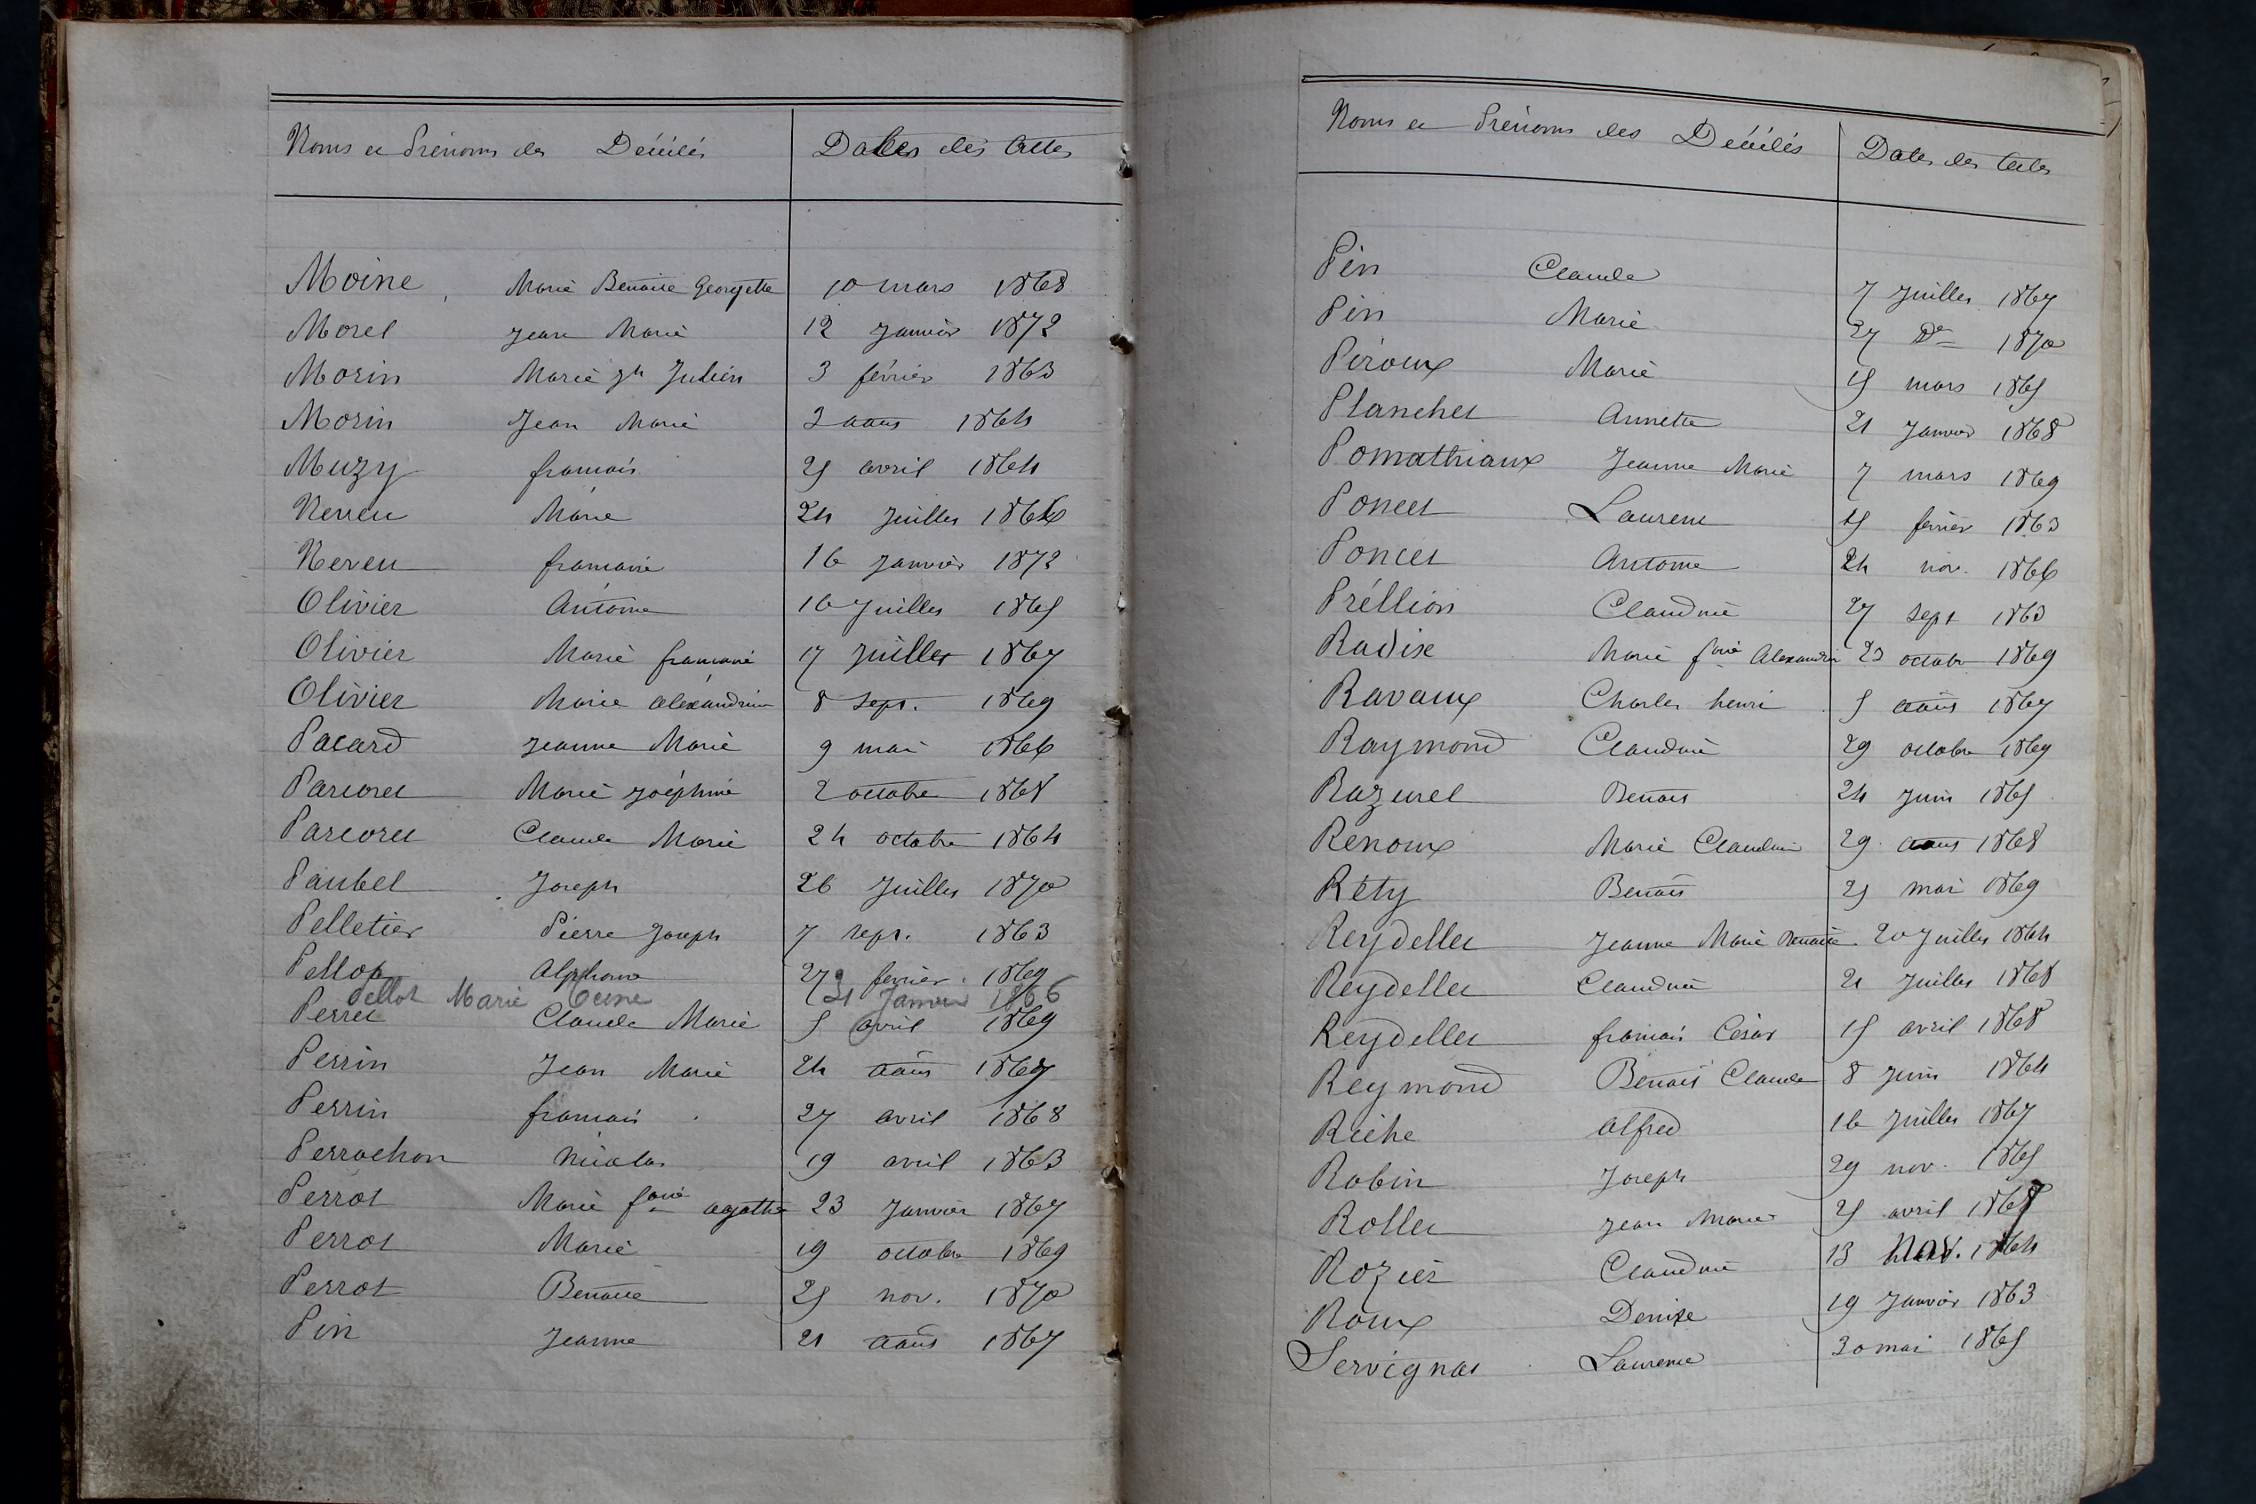 Noms et Prénoms des Décédés Dates des Actes
Moine, Marie Benoite Georgette 10 mars 1868
Morel Jean Marie 12 Janvier 1872
Morin Marie Jh Julien 3 février 1863
Morin Jean Marie 2 aout 1864
Muzy francois 25 avril 1864
Neveu Marie 24 Juillet 1866
Neveu francoise 16 Janvier 1872
Olivier Antoine 16 Juillet 1865
Olivier Marie francoise 17 Juillet 1867
Olivier Marie alexandrine 8 Sept. 1869
Pacard Jeanne Marie 9 mai 1866
Parcoret Marie Joséphine 2 octobre 1868
Parcoret Claude Marie 24 octobre 1864
Paubel Joseph 26 Juillet 1870
Pelletier Pierre Joseph 7 sept. 1863
Pellot Alphonse 27 février 1869
Pellot Marie 21 Janvier 1866
Perret Claude Marie 5 avril 1869
Perrin Jean Marie 24 aout 1867
Perrin francois 27 avril 1868
Perrachon Nicolas 19 avril 1863
Perrot Marie foise agathe 23 Janvier 1867
Perrot Marie 19 octobre 1869
Perrot Benoite 25 nov. 1870
Pin Jeanne 21 aout 1867
Noms et Prénoms des Décédés Dates des Actes
Pin Claude 7 Juillet 1867
Pin Marie 27 De 1870
Piroux Marie 15 mars 1865
Planchet Annette 21 Janvier 1868
Pomathiaux Jeanne Marie 7 mars 1869
Poncet Laurent 15 fevrier 1863
Poncet Antoine 24 nov. 1866
Préllion Claudine 27 sept 1863
Radix Marie foise Alexandrine 23 octobre 1869
Ravaux Charles henri 5 aout 1867
Raymond Claudine 29 octobre 1869
Razurel Benoit 24 Juin 1865
Renoux Marie Claudine 29 aout 1868
Réty Benoit 25 mai 1869
Reydellet Jeanne Marie Benoite 20 Juillet 1864
Reydellet Claudine 21 Juillet 1868
Reydellet francois César 15 avril 1868
Reymond Benoit Claude 8 Juin 1864
Riche Alfred 16 Juillet 1867
Robin Joseph 29 nov. 1865
Rollet Jean Marie 25 avril
Rozier Claudine 13 nov. 1864
Roux Denise 19 Janvier 1863
Servignat Laurence 30 mai 1865